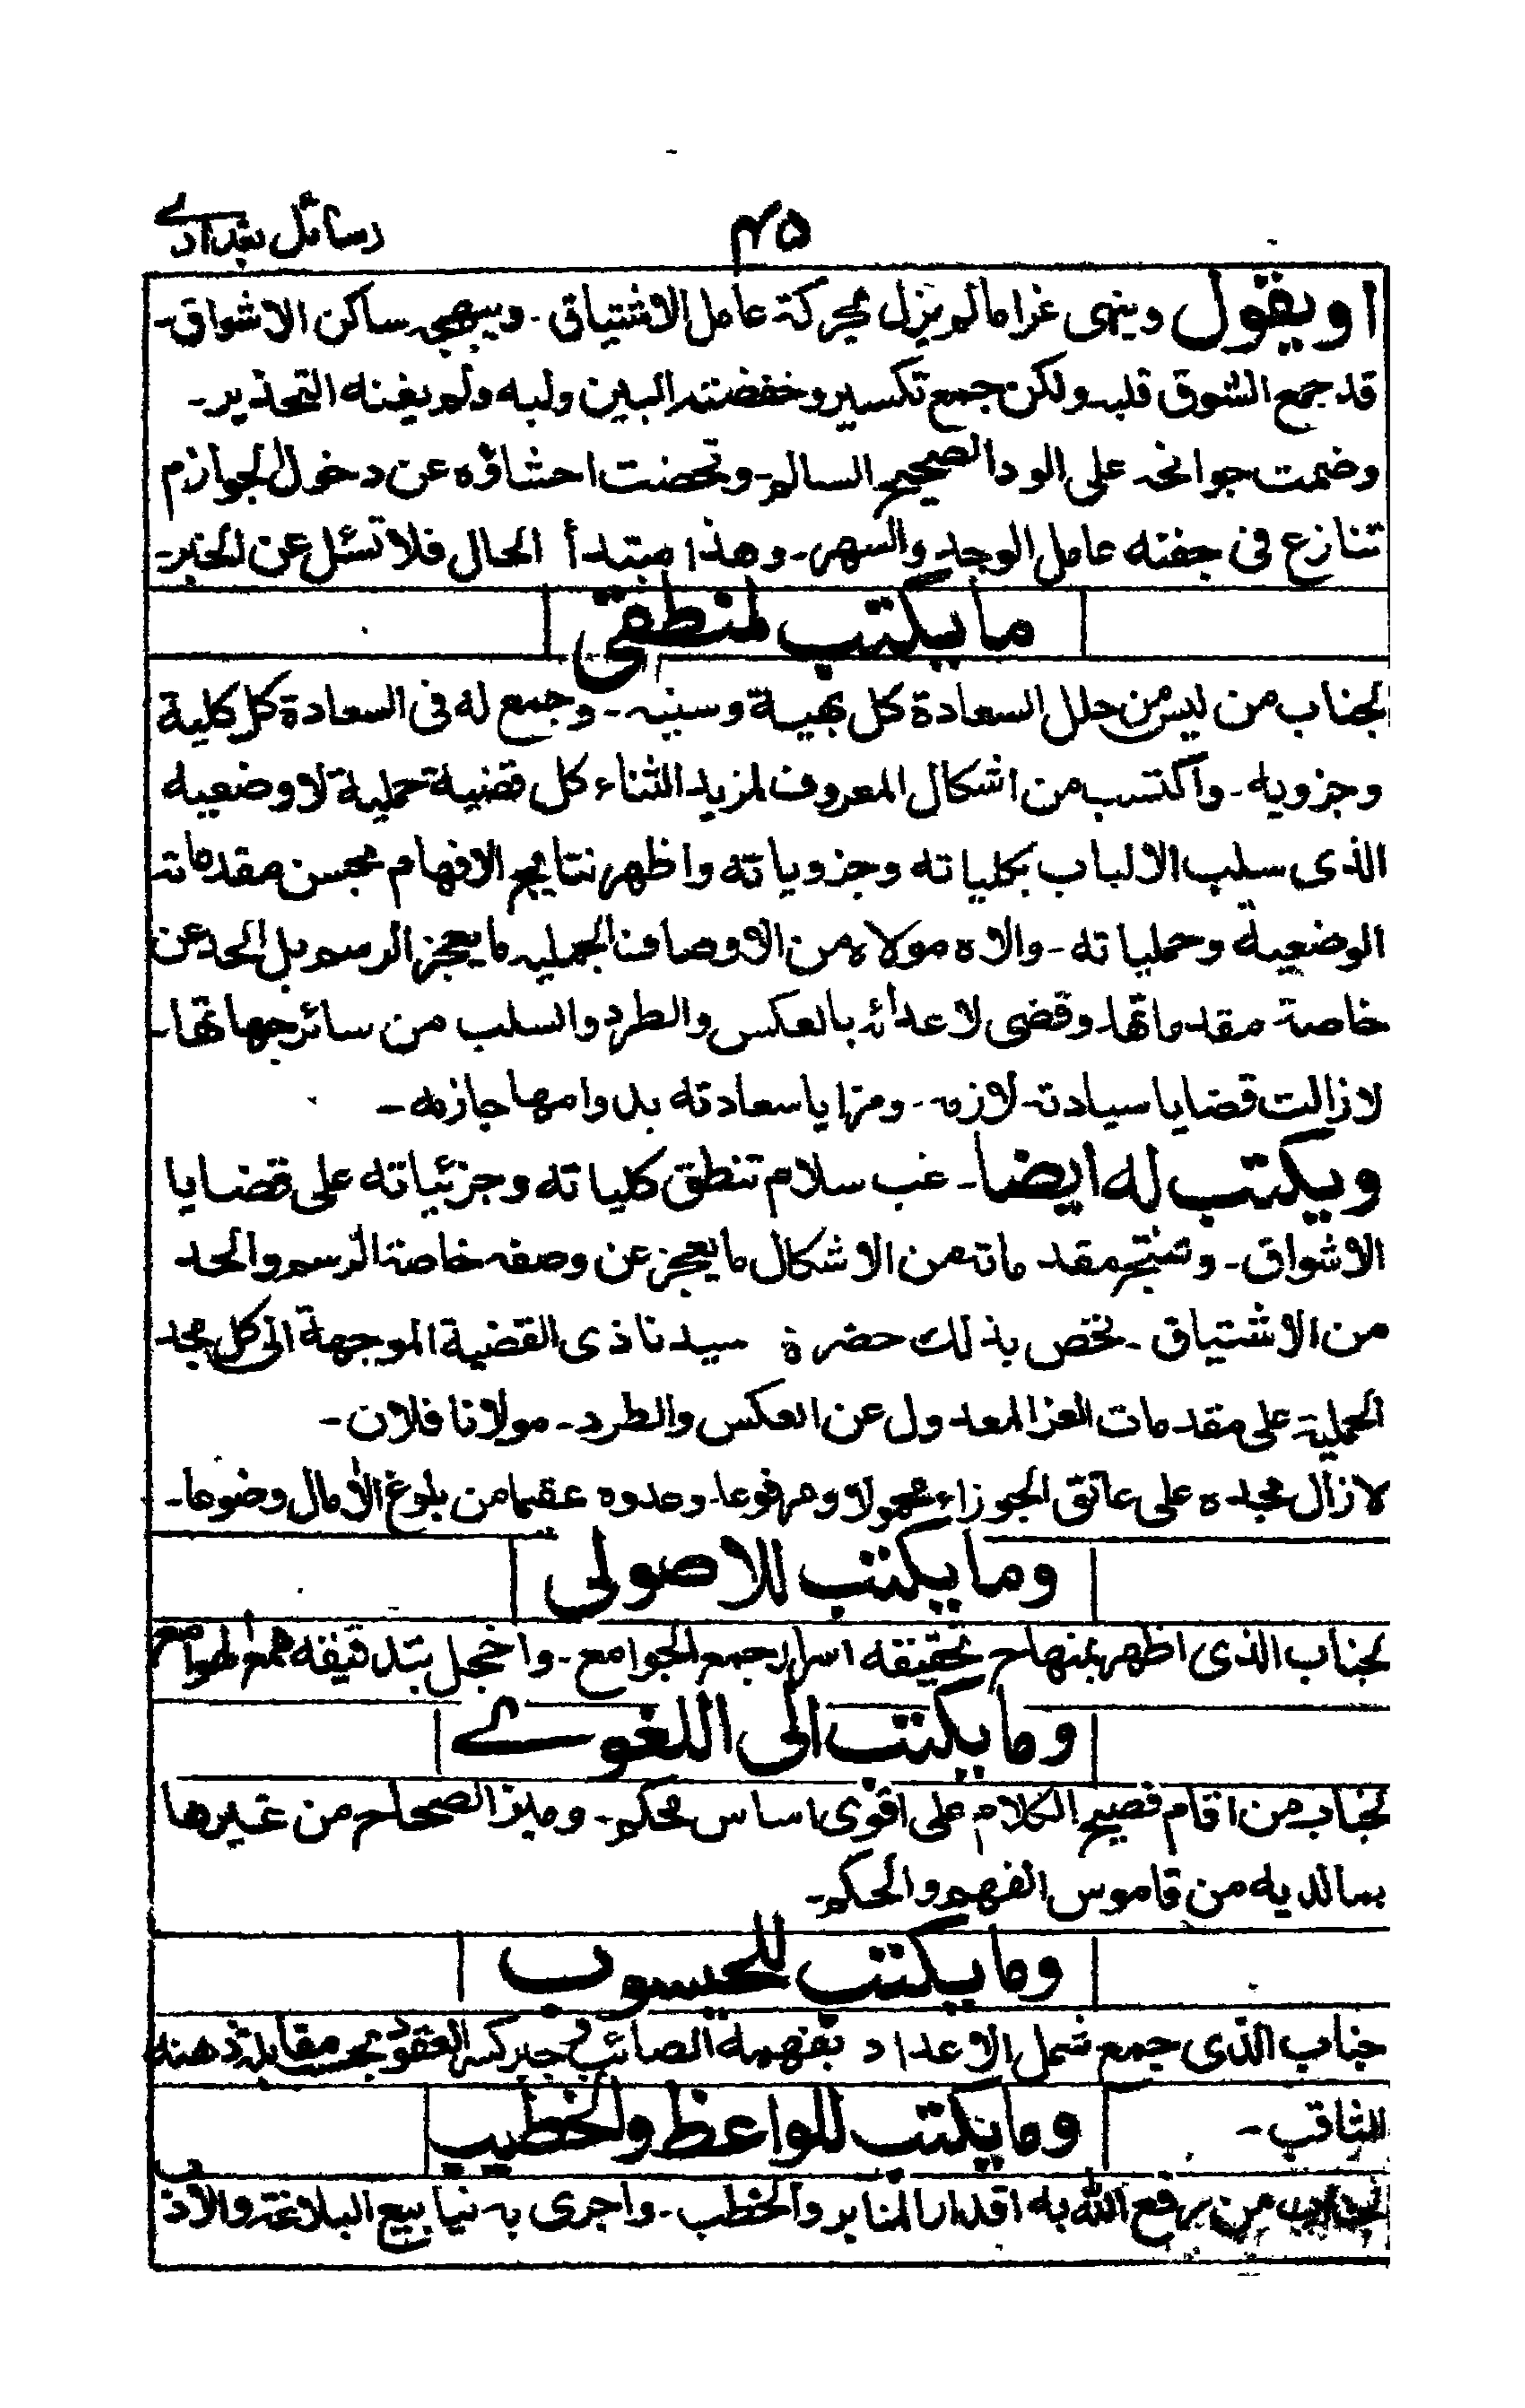 ۴۵ رسائل بغدادے
او يقول وينهى غراما لم يزل بحركة عامل الاشتياق - ويهيجه ساكن الاشواق -
قد جمع الشوق قلبه ولكن جمع تكسير وخفضته البين ولبه ولم يغنه التحذير -
وضمت جوانحه على الود الصحيح السالم - وتحضنت احشاؤه عن دخول الجوازم
تنازع فى جفنه عامل الوجد والسهر - وهذا مبتدأ الحال فلا تسئل عن الخبر -
ما يكتب لمنطقى
لجناب من لبس من حلل السعادة كل بهية وسنيه - وجمع له فى السعادة كل كلية
وجزويه - واكتسب من اشكال المعروف لمزيد الثناء كل قضية حملية لا وضعيه
الذى سلب الالباب بكلياته وجزوياته واظهر نتايج الافهام بحسن مقدماته
الوضعية وحملياته - والاه مولاه من الاوصاف الجمليه ما يعجز الرسم بل الحد عن
خاصة مقدماتها - وقضى لاعدائه بالعكس والطرد والسلب من سائر جهاتها -
لا زالت قضايا سيادته لازمه - ومزايا سعادته بدوامها جازمه -
ويكتب له ايضا - غب سلام تنطق كلياته وجزئياته على قضايا
الاشواق - وتنتج مقدماته من الاشكال ما يعجز عن وصفه خاصة الرسم والحد
من الاشتياق - نخص بذلك حضرة سيدنا ذى القضية الموجهة الى كل مجد
الحملية على مقدمات العز المعدول عن العكس والطرد - مولانا فلان -
لا زال مجده على عاتق الجوزاء محمولا ومرفوعا - وعدوه عقيما من بلوغ الآمال وضوعا -
وما يكتب للاصولى
لجناب الذى اظهر بمنهاج تحقيقه اسرار جمع الجوامع - واخجل بتدقيقه همع الهوامع
وما يكتب الى اللغوے
لجناب من اقام فصيح الكلام على اقوى اساس محكم - وميز الصحاح من غيرها
بما لديه من قاموس الفهم والحكم -
وما يكتب للحيسوب
جناب الذى جمع شمل الاعداد بفهمه الصائب فى جبر كسر العقود بحسن مقابلة ذهنه
الثاقب -
وما يكتب للواعظ والخطيب
لجناب من رفع الله به اقدار المنابر والخطب - واجرى به ينابيع البلاغة والادب